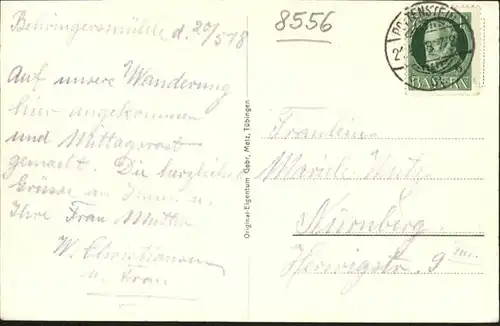 Behringersmühle d. 20/5 18
Auf unsere Wanderung
hier angekommen
und Mittagsrast
gemacht. Die herzlichen
Grüsse an Ihnen u.
Ihre Frau Mutter
W. Christiansen
u. Frau
Original-Eigentum Gebr. Metz, Tübingen
8556
POTTENSTEIN
BAYERN
Fräulein
Marie
Nürnberg
Herwigstr. 9